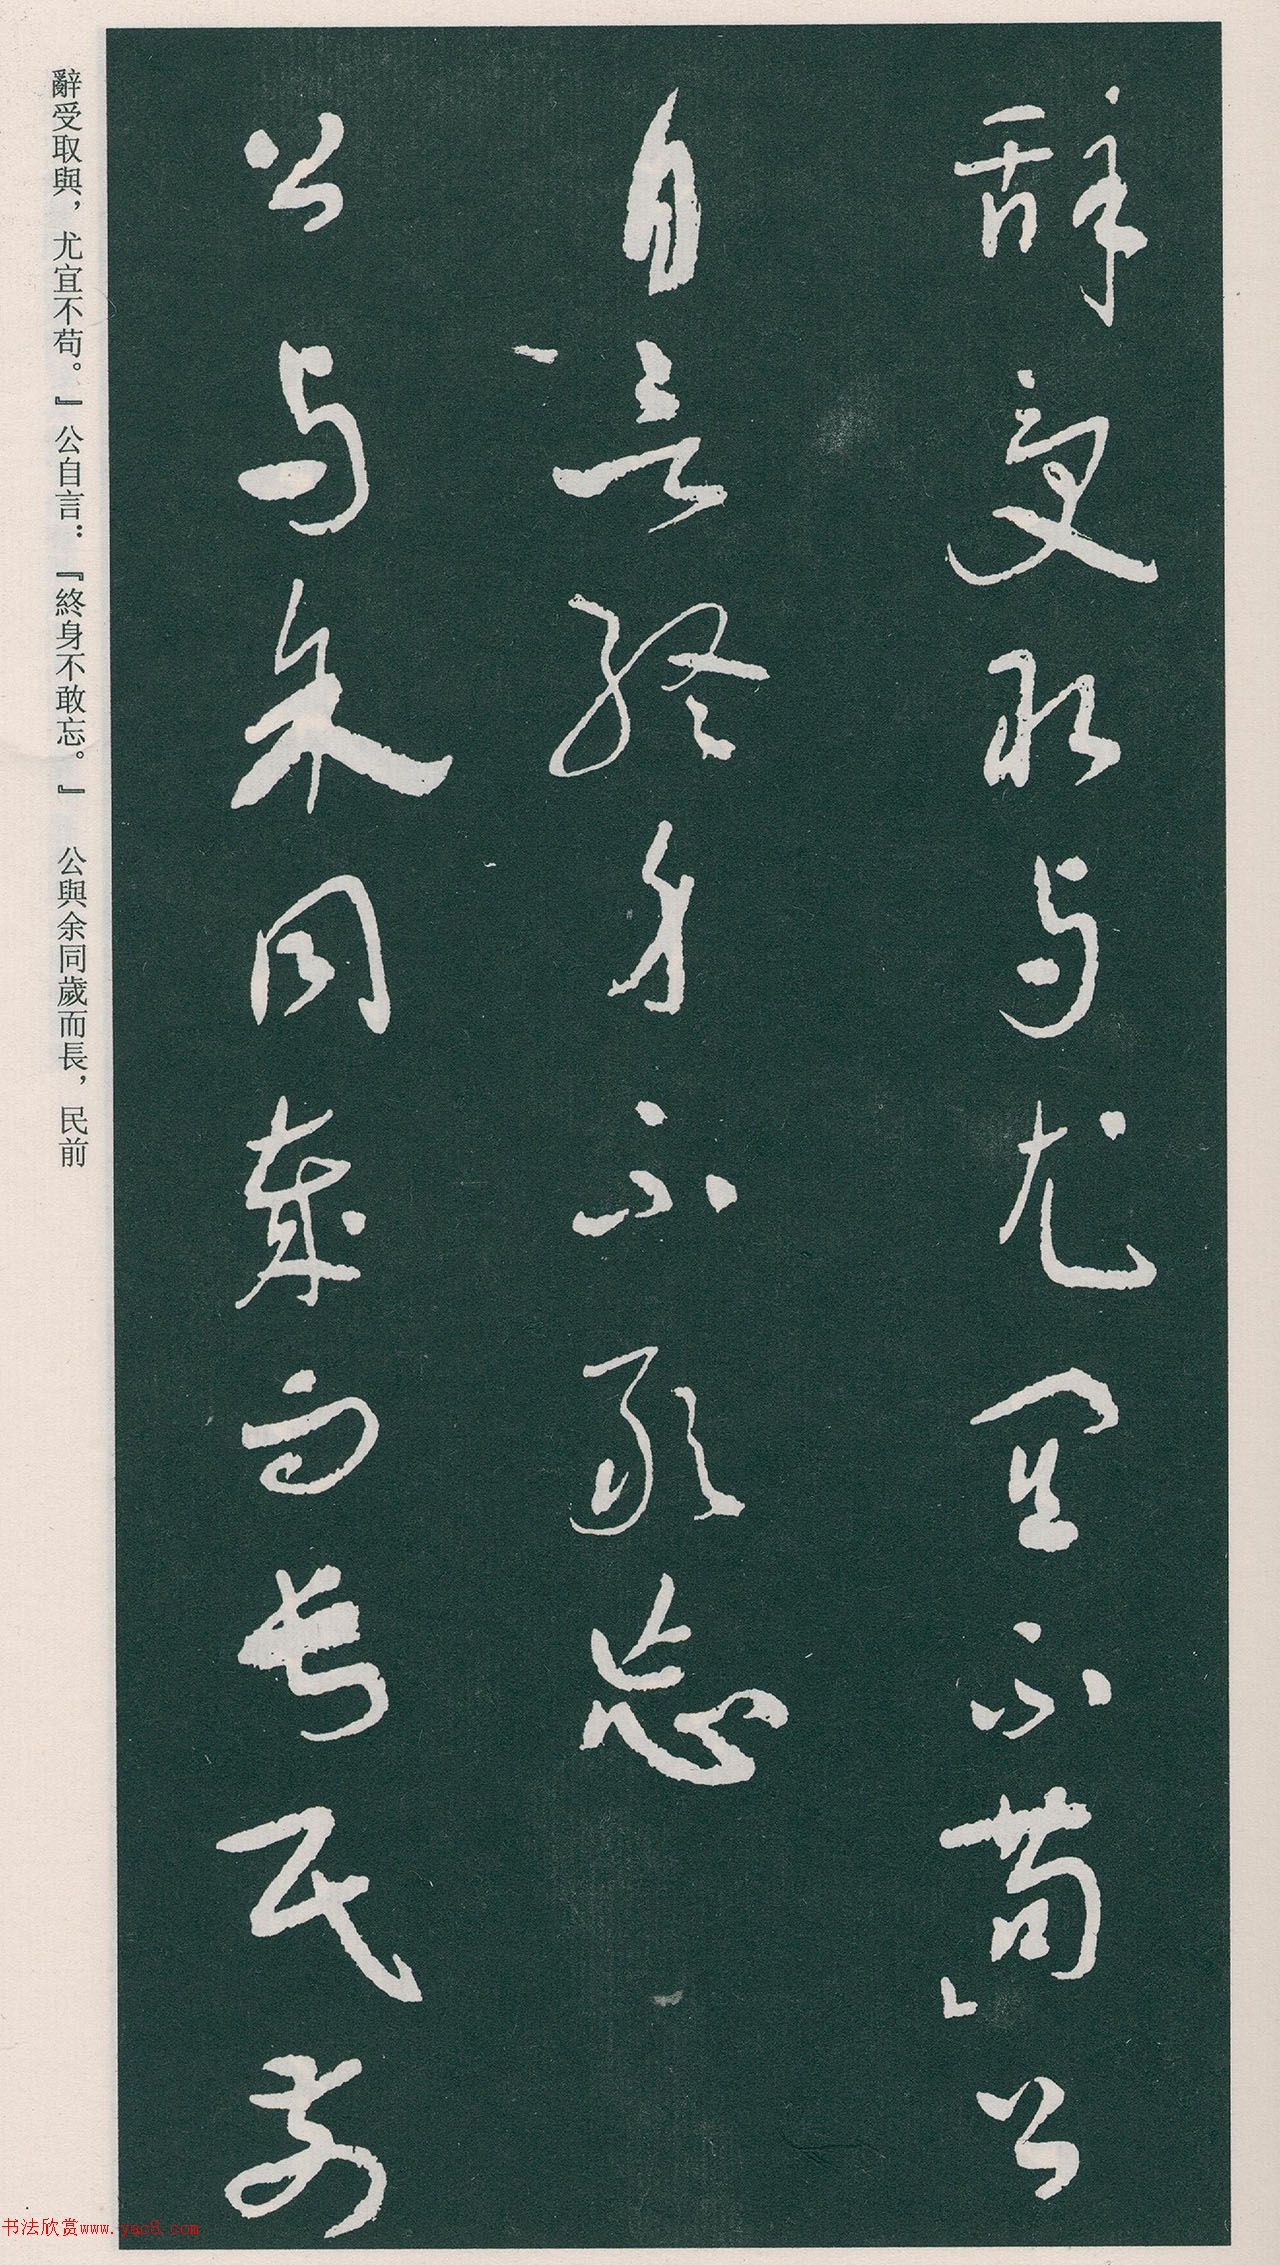 辞受取与尤宜不苟」公
自言「終身不敢忘
公与余同歲而長民前
辭受取與，尤宜不苟。』公自言：『終身不敢忘。』 公與余同歲而長，民前
书法欣赏www.yac8.com